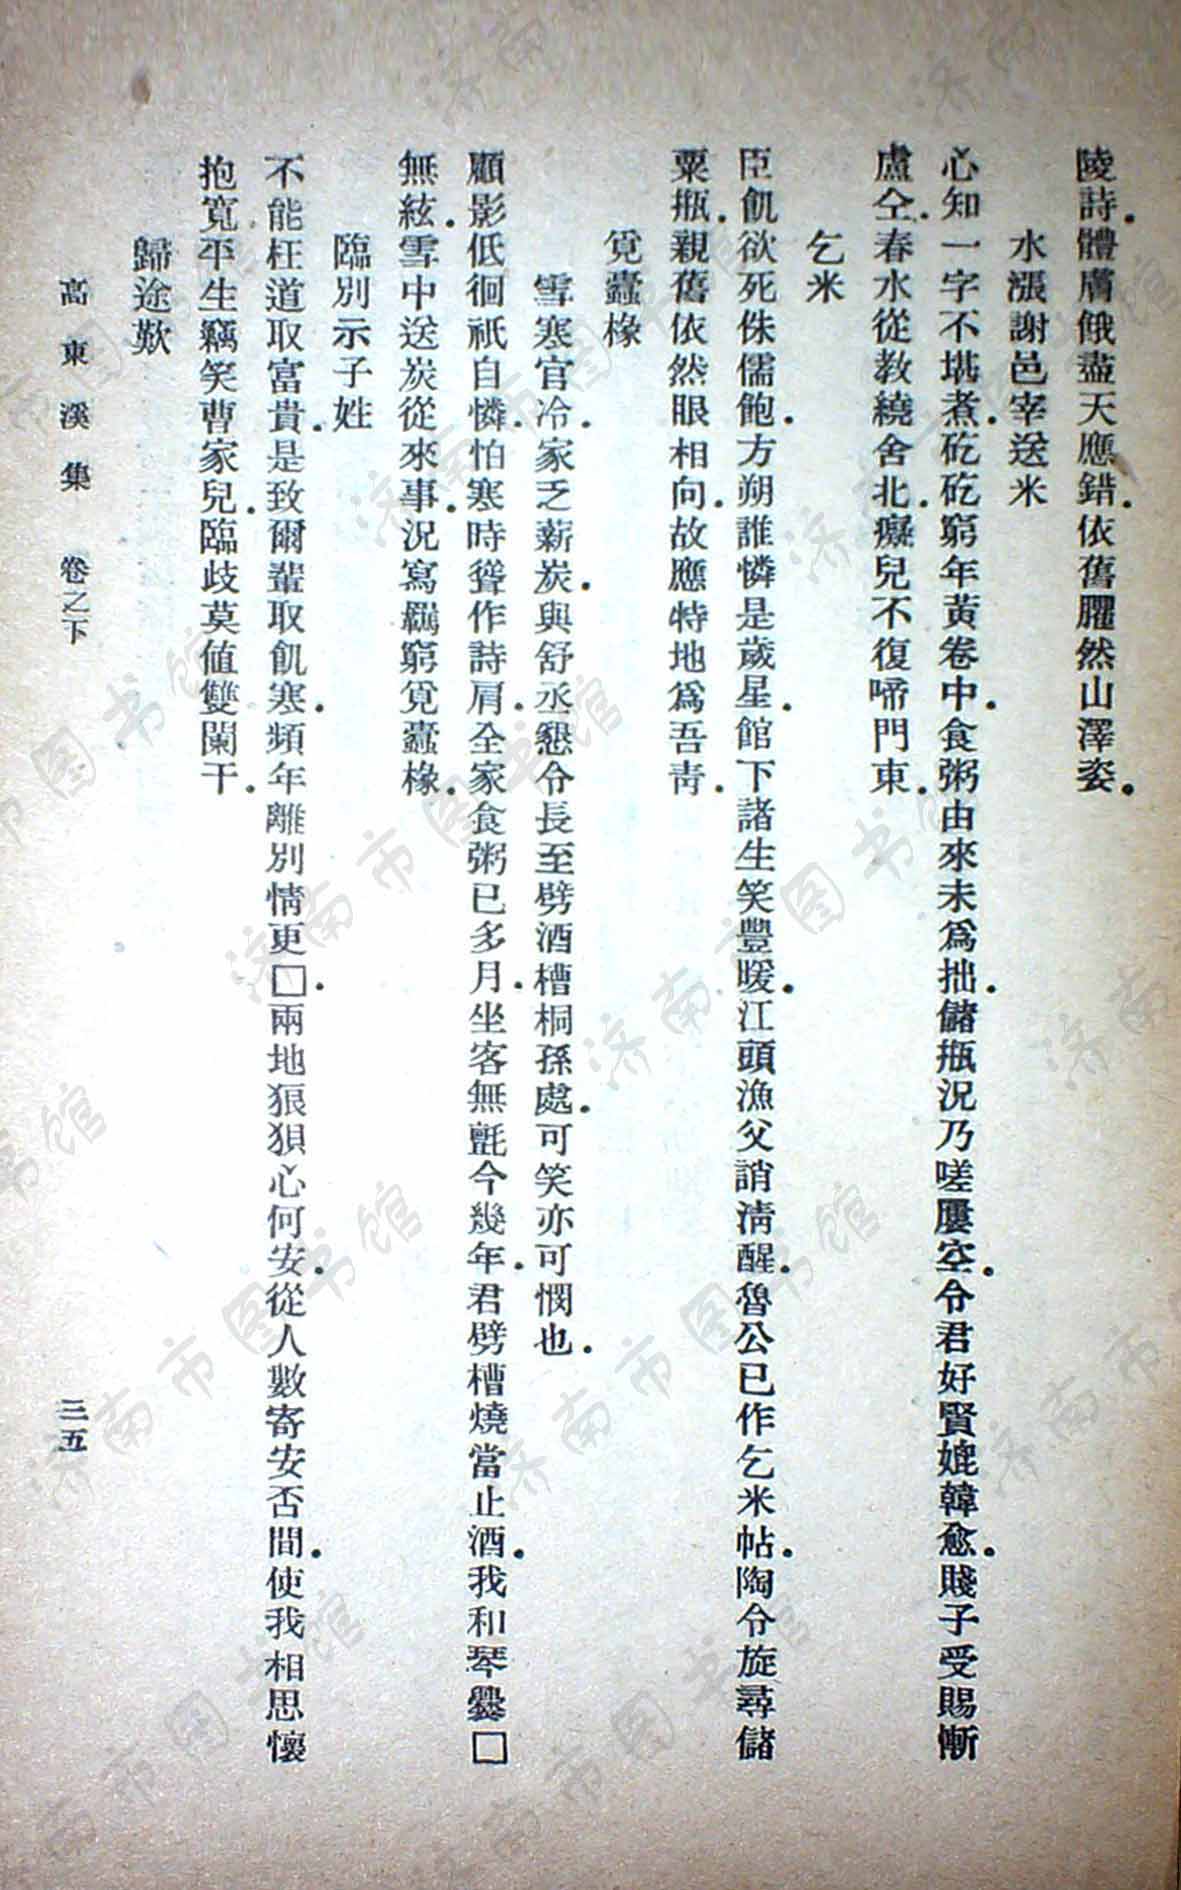 陵詩。體膚餓盡天應錯。依舊臞然山澤姿。
水漲謝邑宰送米
心知一字不堪煮。矻矻窮年黃卷中。食粥由來未爲拙。儲瓶況乃嗟屢空。令君好賢媲韓愈。賤子受賜慚
盧仝。春水從教繞舍北。癡兒不復啼門東。
乞米
臣飢欲死侏儒飽。方朔誰憐是歲星。館下諸生笑豐暖。江頭漁父誚清醒。魯公已作乞米帖。陶令旋尋儲
粟瓶。親舊依然眼相向。故應特地爲吾靑。
覓蠹椽
雪寒官冷。家乏薪炭。與舒丞懇令長至劈酒槽桐孫處。可笑亦可憫也。
顧影低徊祇自憐。怕寒時聳作詩肩。全家食粥已多月。坐客無氈今幾年。君劈槽燒當止酒。我和琴爨□
無絃。雪中送炭從來事。況寫羈窮覓蠹椽。
臨別示子姓
不能枉道取富貴。是致爾輩取飢寒。頻年離別情更□。兩地狼狽心何安。從人數寄安否間。使我相思懷
抱寬。平生竊笑曹家兒。臨歧莫値雙闌干。
歸途歎
高東溪集 卷之下
三五
济南市图书馆